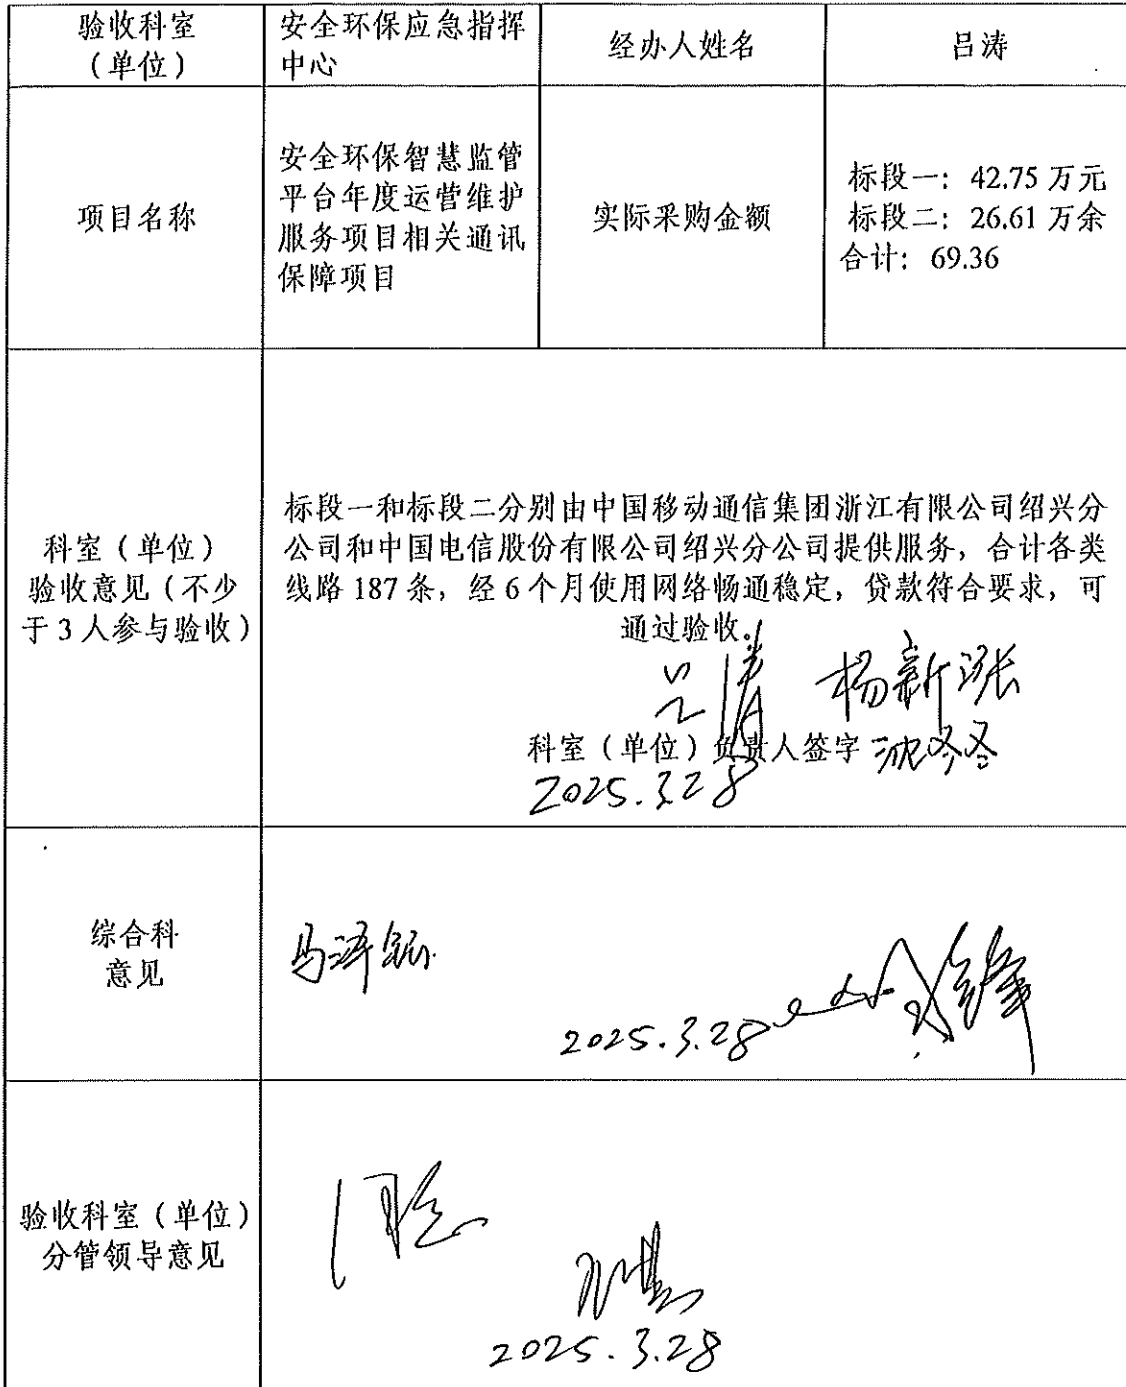 验收科室
（单位）
安全环保应急指挥
中心
经办人姓名
吕涛
项目名称
安全环保智慧监管
平台年度运营维护
服务项目相关通讯
保障项目
实际采购金额
标段一：42.75 万元
标段二：26.61 万余
合计：69.36
科室（单位）
验收意见（不少
于 3 人参与验收）
标段一和标段二分别由中国移动通信集团浙江有限公司绍兴分
公司和中国电信股份有限公司绍兴分公司提供服务，合计各类
线路 187 条，经 6 个月使用网络畅通稳定，贷款符合要求，可
通过验收。
吕涛 杨新涨
科室（单位）负责人签字 沈冬冬
2025.3.28
综合科
意见
2025.3.28
验收科室（单位）
分管领导意见
2025.3.28